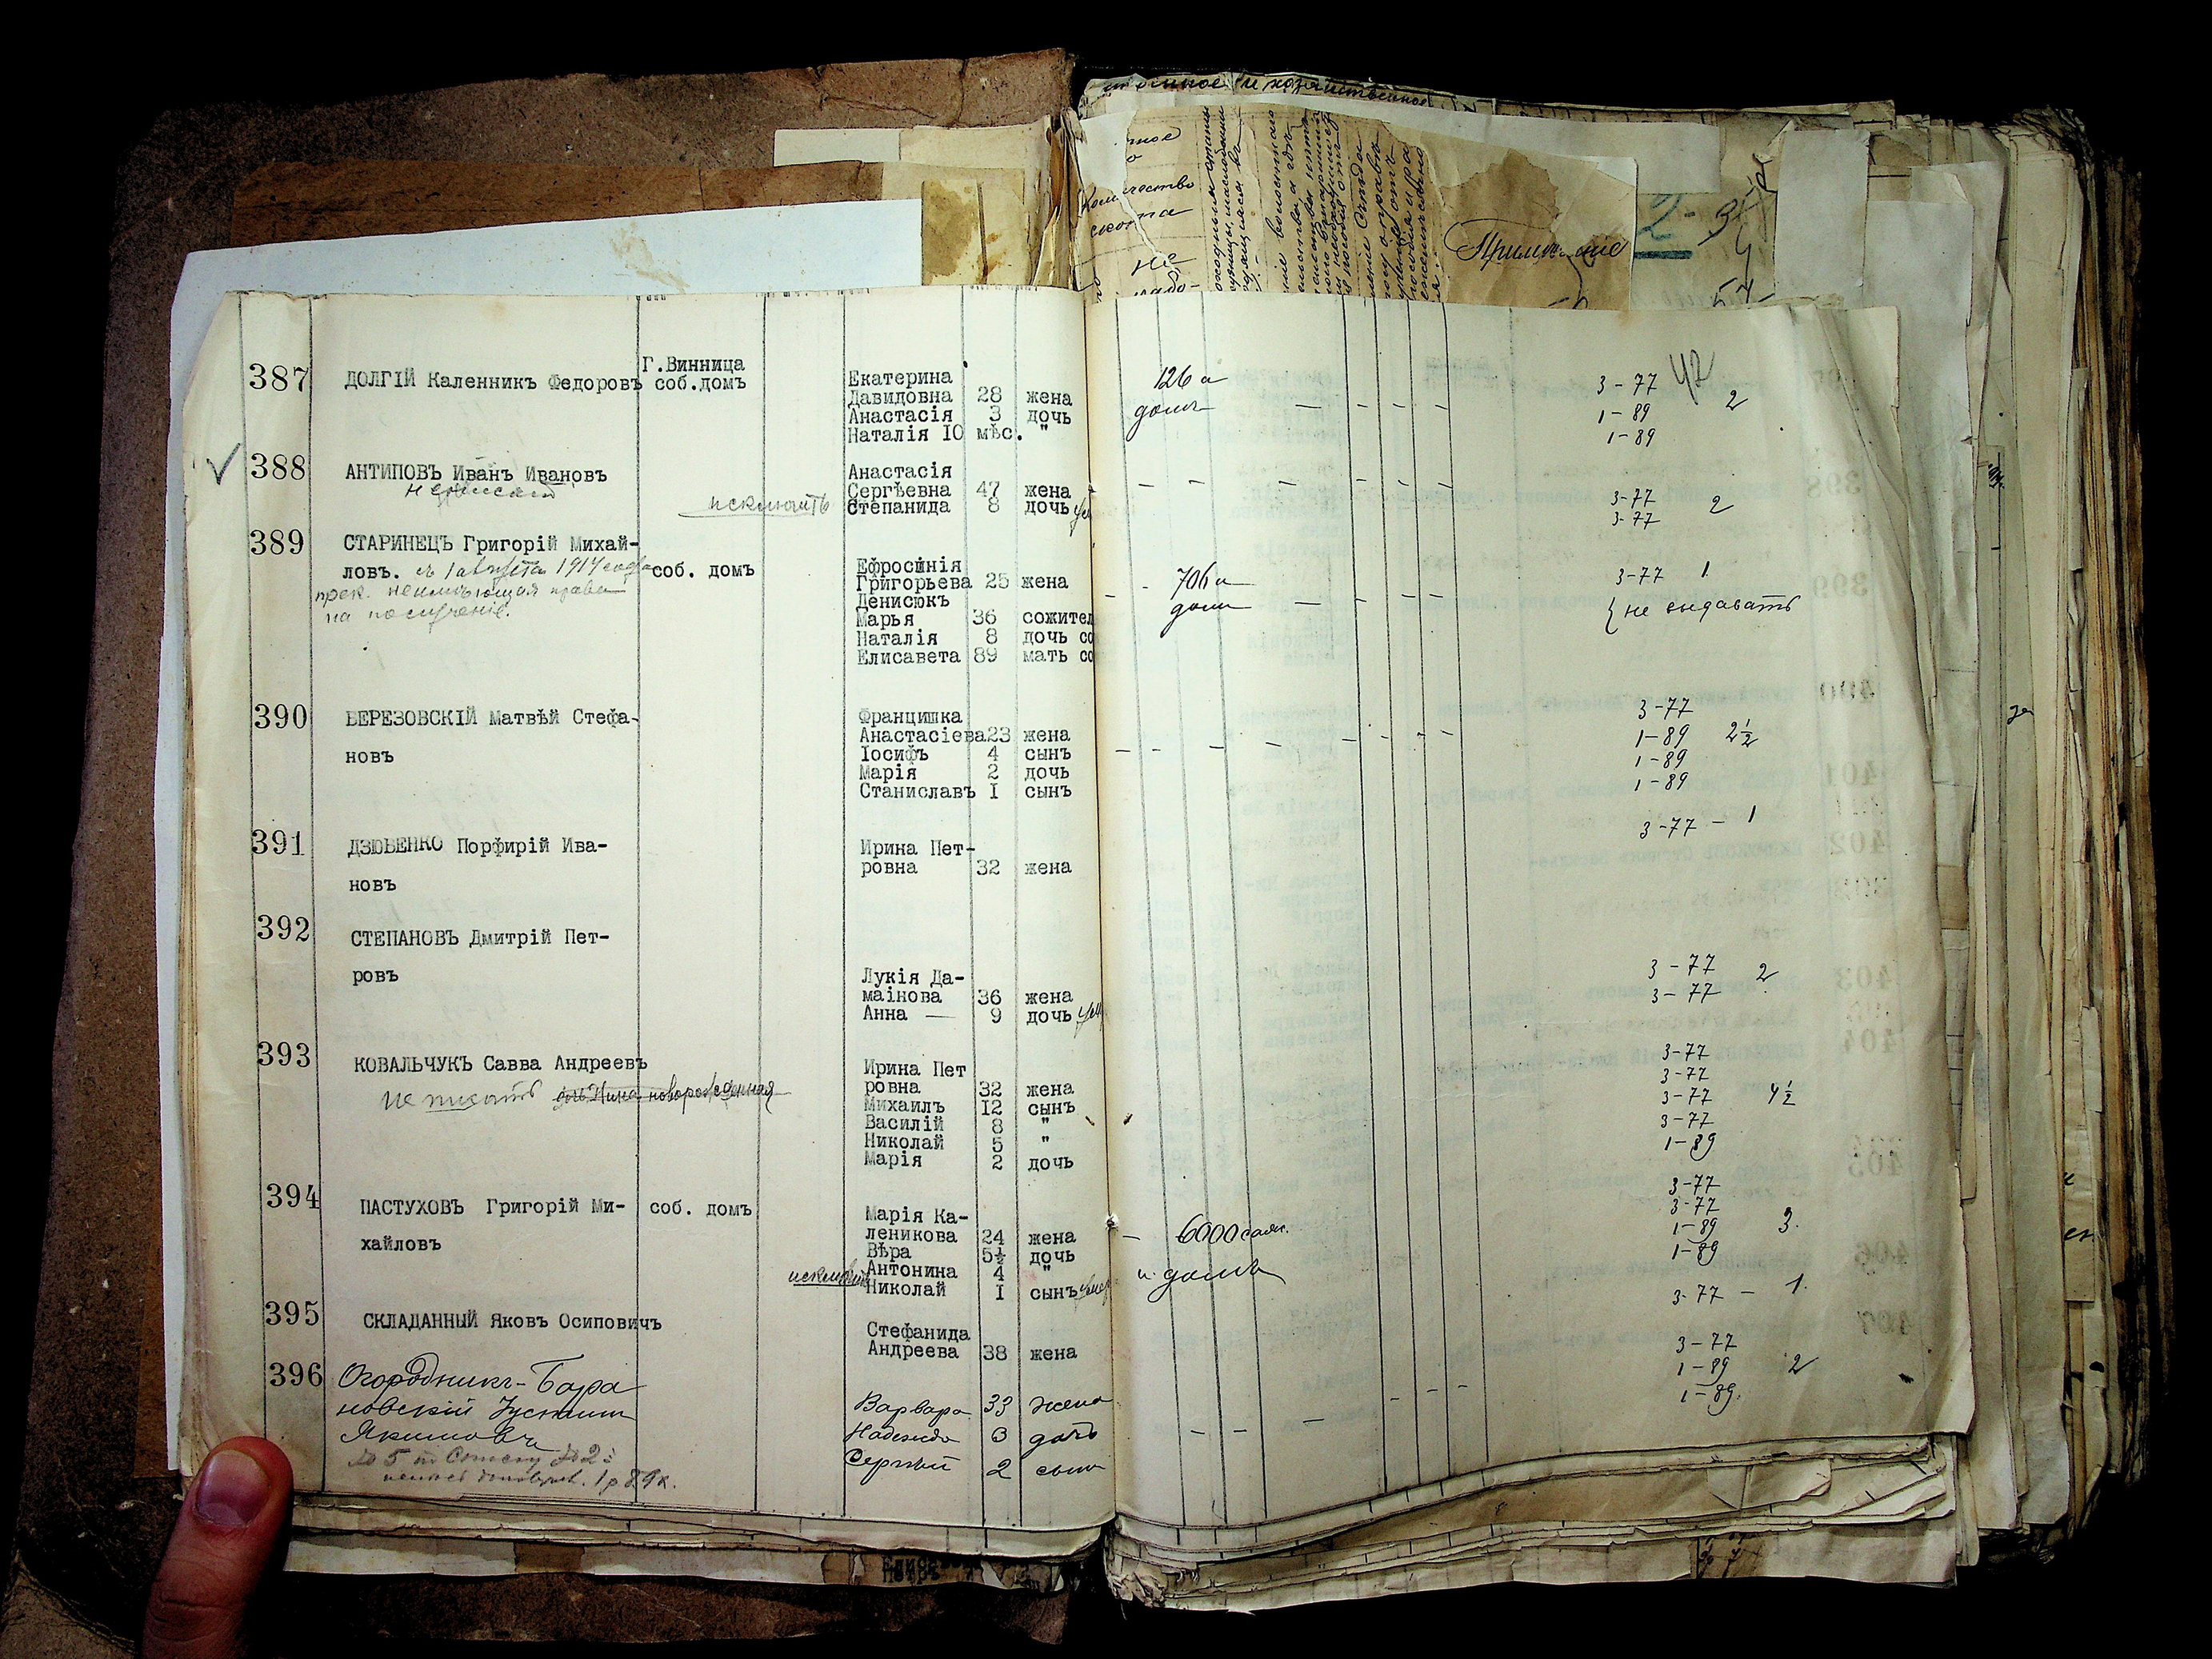 387 ДОЛГІЙ Каленникъ Федоровъ
Г.Винница
соб.домъ
Екатерина
Давидовна 28 жена
Анастасія 3 дочь
Наталія IO мѣс. "
126 а
домъ
3-77
1-89 2
1-89
42
388 АНТИПОВЪ Иванъ Ивановъ
исключить
Анастасія
Сергѣевна 47 жена
Степанида 8 дочь
3-77
3-77 2
389 СТАРИНЕЦЪ Григорій Михай-
ловъ. съ 1 августа 1914 года
прек. неимѣющая права
на полученіе.
соб. домъ
Ефросинія
Григорьева 25 жена
Денисюкъ
Марья 36 сожител
Наталія 8 дочь со
Елисавета 89 мать со
706 а
домъ
3-77 1
не выдавать
390 БЕРЕЗОВСКІЙ Матвѣй Стефа-
новъ
Францишка
Анастасіева 23 жена
Іосифъ 4 сынъ
Марія 2 дочь
Станиславъ I сынъ
3-77
1-89 2½
1-89
1-89
391 ДЗЮБЕНКО Порфирій Ива-
новъ
Ирина Пет-
ровна 32 жена
3-77 - 1
392 СТЕПАНОВЪ Дмитрій Пет-
ровъ
Лукія Да-
маінова 36 жена
Анна — 9 дочь
3-77 2
3-77
393 КОВАЛЬЧУКЪ Савва Андреевъ
не писать дочь Нина новорожденная
Ирина Пет
ровна 32 жена
Михаилъ I2 сынъ
Василій 8 "
Николай 5 "
Марія 2 дочь
3-77
3-77
3-77 4½
3-77
1-89
394 ПАСТУХОВЪ Григорій Ми-
хайловъ
соб. домъ
Марія Ка-
леникова 24 жена
Вѣра 5½ дочь
Антонина 4 "
Николай I сынъ
6000 саж.
и домъ
3-77
3-77
1-89 3.
1-89
395 СКЛАДАННЫЙ Яковъ Осиповичъ
Стефанида
Андреева 38 жена
3-77 - 1.
396 Огородникъ-Бара
новскій Іустинъ
Якимовъ
№ 5 по Списку № 2
1 р 89 к.
Варвара 33 жена
Надежда 3 дочь
Сергѣй 2 сынъ
3-77
1-89 2
1-89.
Количество
скота